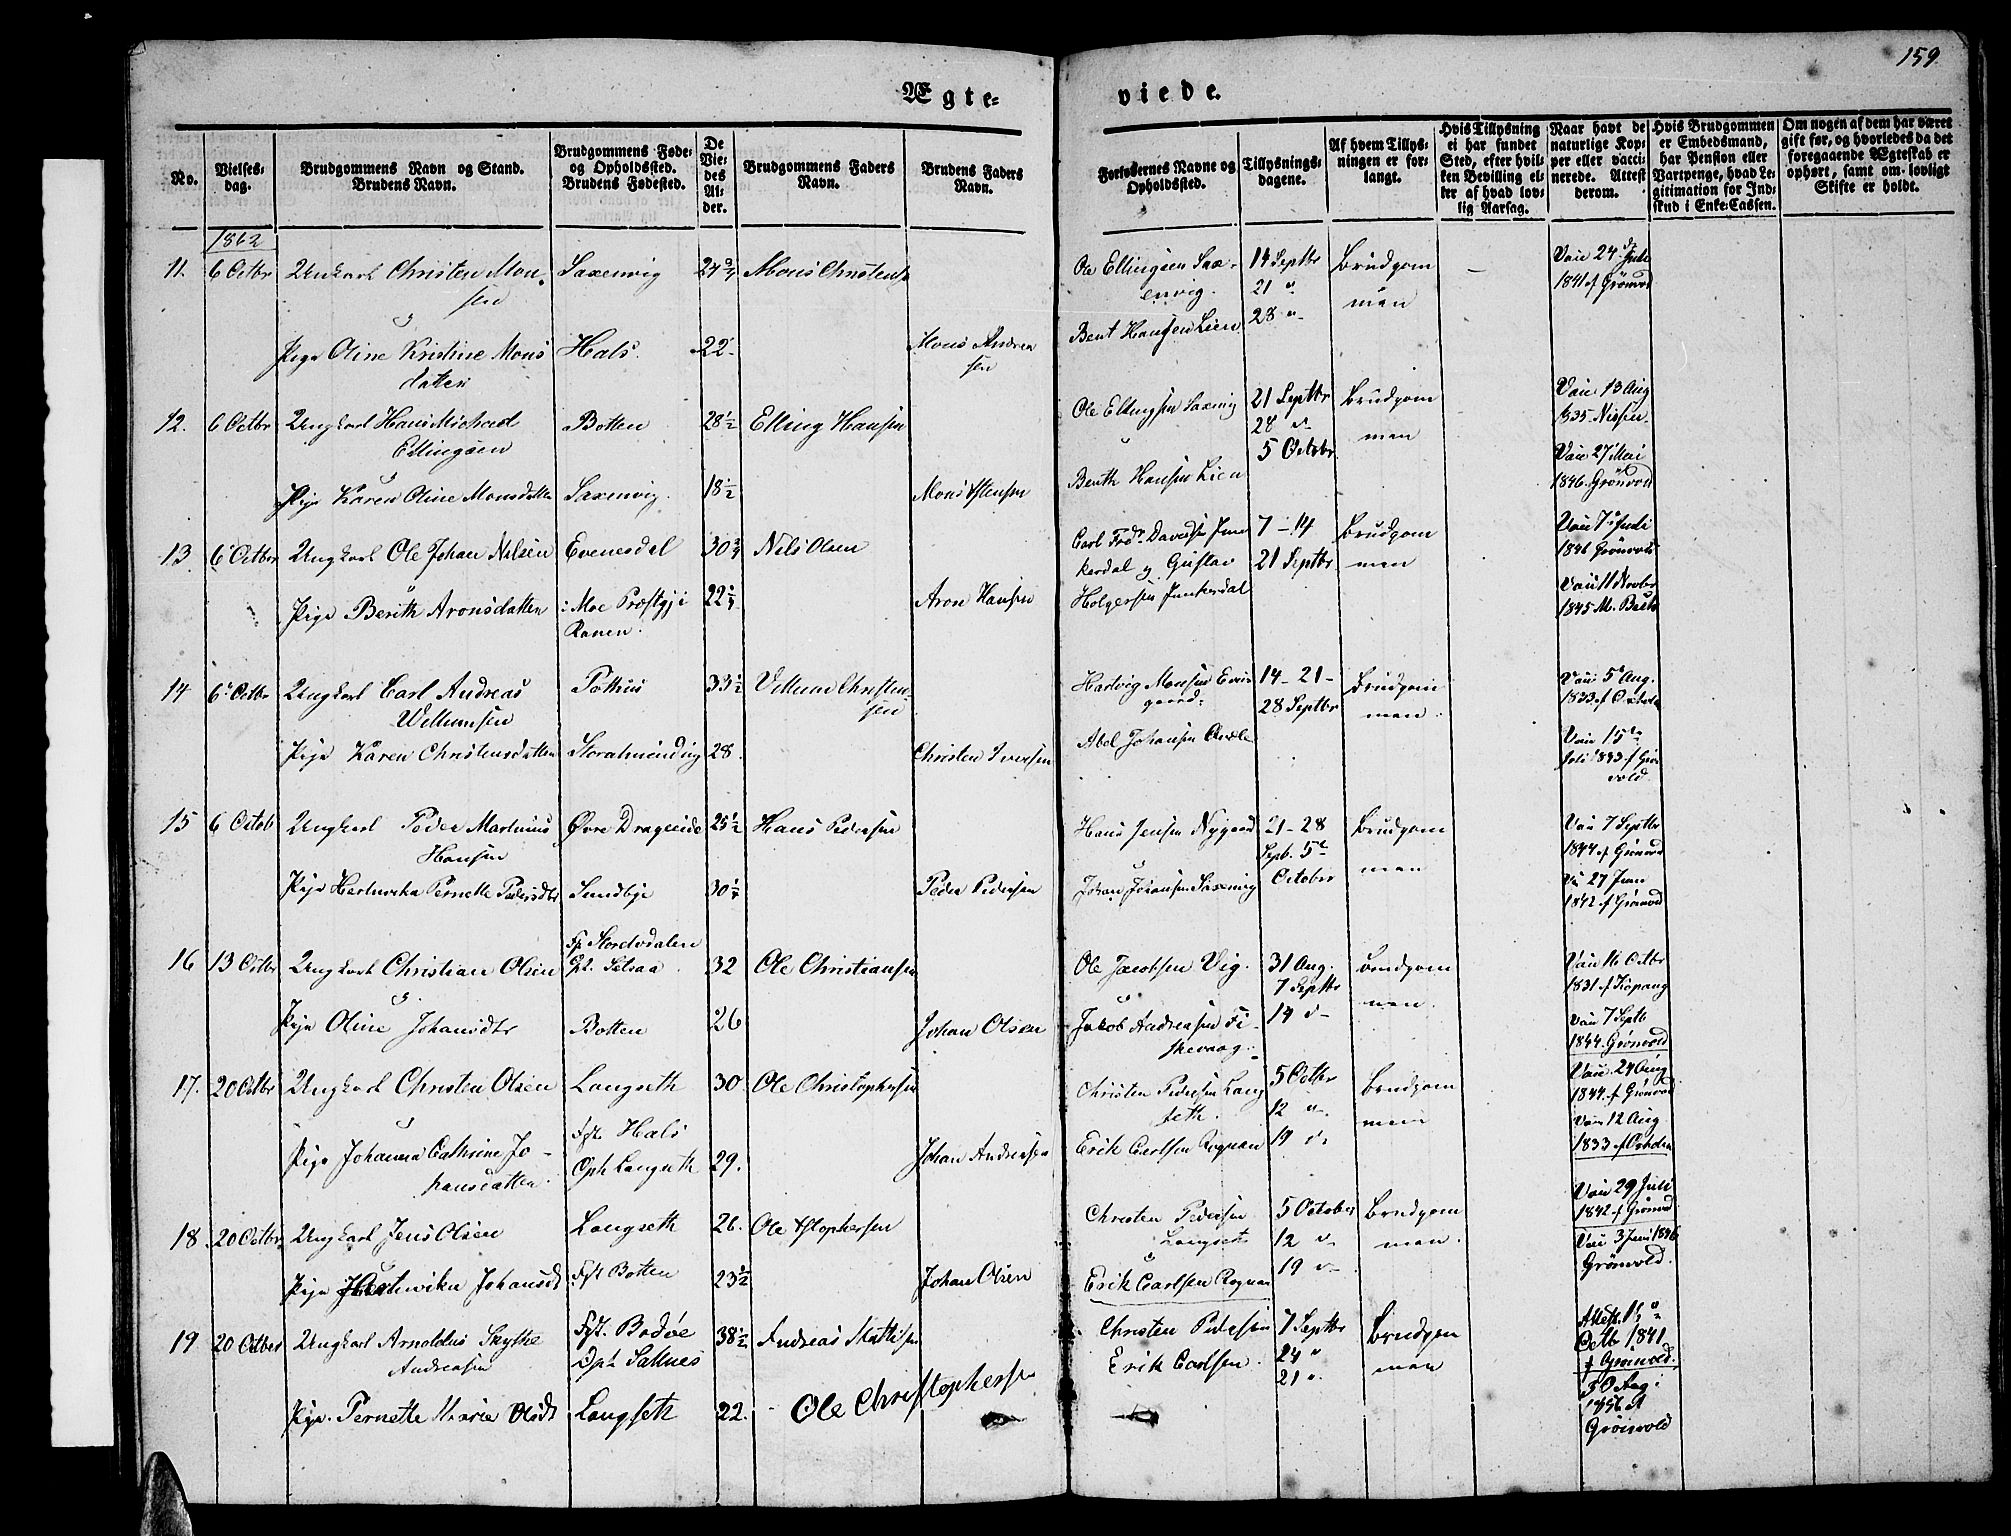 159
Ægte-
viede.
No.
Vielses-
dag.
Brudgommens Navn og Stand.
Brudens Navn.
Brudgommens Føde-
og Opholdssted.
Brudens Fødested.
De
Vie-
des
Al-
der.
Brudgommens Faders
Navn.
Brudens Faders
Navn.
Forlovernes Navne og
Opholdssted.
Tillysnings-
dagene.
Af hvem Tillys-
ningen er for-
langt.
Hvis Tillysning
ei har fundet
Sted, efter hvil-
ken Bevilling el-
ler af hvad lov-
lig Aarsag.
Naar havt de
naturlige Kop-
per eller vacci-
nerede. Attest
derom.
Hvis Brudgommen
er Embedsmand,
har Pension eller
Vartpenge, hvad Le-
gitimation for Ind-
skud i Enke-Cassen.
Om nogen af dem har været
gift før, og hvorledes da det
foregaaende Ægteskab er
ophørt, samt om lovligt
Skifte er holdt.
1862
11. 6 Octbr Ungkarl Christen Mon-
sen
Saxenvig 27 3/4 Mons Christens
Ole Ellingsen Sax-
envig.
14 Septbr
21 "
28 "
Brudgom
men
Vaii 24 Juli
1841 f Grönvold
Pige Oline Kristine Mons
datter
Hals. 22 Mons Andrea
sen
Bent Hansen Lien
12. 6 Octbr Ungkarl Hans Michael
Ellingsen
Botten 28 1/2 Elling Hansen
Ole Ellingsen Saxenvig
21 Septbr
28
5 Octobr
Brudgom
men
Vaii 13 Aug
1835 Nissen.
Pige Karen Oline Monsdatter Saxenvig. 18 1/2
Mons Ostensen
Benth Hansen Lien
Vaii 27 Mai
1846. Grönvold
13 6 Octbr Ungkarl Ole Johan Nilsen Evenesdal 30 3/4 Nils Olsen
Carl Fred. Davidsen Jun
kerdal og Gustav
Holgersen Junkerdal
7 - 14
21 Septbr
Brudgom
men
Vaii 7 Juli
1846 Grönvold
Pige Berith Aronsdatter : Moe Præstgj i
Ranen.
22 1/4 Aron Hansen
Vaii 11 Novbr
1845 M.
14 6 Octbr Ungkarl Carl Andreas
Willumsen
Pothus 33 1/2 Villum Christen-
sen
Hartvig Monsen
gaard
14 - 21 -
28 Septbr
Brudgom
men.
Vaii 5 Aug.
1833 f
Pige Karen Christensdatter Storalmending 28
Christen Iversen
Abel Johansen
Vaii 15
Juli 1843 f Grön
vold
15 6 Octob Ungkarl Peder Martinus
Hansen
Øvre Drageeide 25 1/2 Hans Pedersen
Hans Jensen Nygaard
21 - 28
Sept. 5
October
Brudgom
men
Vaii 7 Septbr
1844 f Grönvold
Pige Hartvika Pernelle Pedersdtr Sundbye 30 1/4
Peder Pedersen
Johan Johansen Saxenvig
Vai 27 Juni
1842 f Grönvold
16 13 Octbr Ungkarl Christian Olsen
Fp. Stordvdalen
Oph. Setsaa.
32 Ole Christiansen
Ole Jacobsen Vig.
31 Aug.
7 Septbr
14
Brudgom
men.
Vaii 16 Octbr
1831 f Kopang
Pige Oline Johansdtr Botten 26
Johan Olsen
Jakob Andreasen Fi-
skevaag.
Vaii 7 Septb
1844. Grönvold
17. 20 Octbr Ungkarl Christen Olsen Langseth 30. Ole Christophersen
Christen Pedersen Lang
seth.
5 Octbr
12 "
19
Brudgom
men
Vaii 24 Aug
1844 f Grönvold
Pige Johanna Cathrine Jo-
hansdatter
Fst. Hals
Oph Langseth
29.
Johan Andersen
Erik Carlsen Rognan
Vaii 12 Aug
1833 f
18. 20 Octbr Ungkarl Jens Olsen Langseth 26. Ole Xstophersen
Christen Pedersen
Langset
5 October
12
19
Brudgom
men.
Vaii 29 Juli
1842 f Grönvold
Pige Hartvika Johansdt Fst Botten 23 1/2
Johan Olsen
Erik Carlsen Rognan
Vaii 3 Juni 1846
Grönvold.
19 20 Octber Ungkarl Arnoldus Skytte
Andreasen
Fst. Bodöe
Oph Saltnes
38 1/2 Andreas Mathisen
Christen Pedersen
Erik Carlsen.
7 Septbr
24 "
21 "
Brudgom
men
Attest. 15
Octb 1841
f Grönvold.
Pige. Pernette Marie Olsdt Langseth 22. Ole Christophersen
30 Aug
1856 f
Grönvold